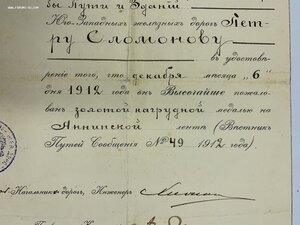 бы Пути и Зданій
Юго-Западныхъ желѣзныхъ дорогъ Пет-
ру Сломонову
въ удостовѣ-
реніе того, что декабря мѣсяца „6"
дня 1912 года онъ Высочайше пожало-
ванъ золотой нагрудной медалью на
Аннинской лентѣ (Вѣстникъ
Путей Сообщенія № 49 1912 года).
Начальникъ дорогъ, Инженеръ